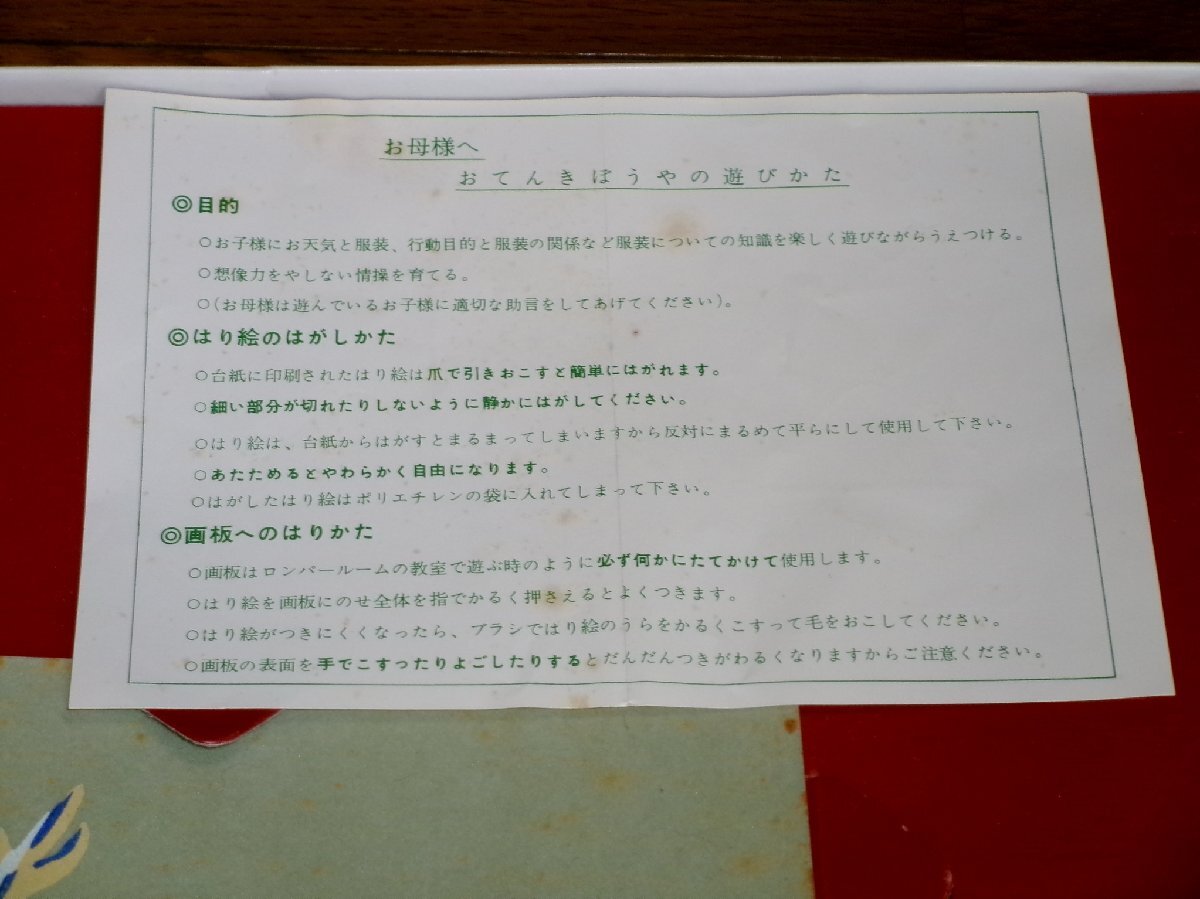 お母様へ
おてんきぼうやの遊びかた
◎目的
○お子様にお天気と服装、行動目的と服装の関係など服装についての知識を楽しく遊びながらうえつける。
○想像力をやしない情操を育てる。
○(お母様は遊んでいるお子様に適切な助言をしてあげてください)。
◎はり絵のはがしかた
○台紙に印刷されたはり絵は爪で引きおこすと簡単にはがれます。
○細い部分が切れたりしないように静かにはがしてください。
○はり絵は、台紙からはがすとまるまってしまいますから反対にまるめて平らにして使用して下さい。
○あたためるとやわらかく自由になります。
○はがしたはり絵はポリエチレンの袋に入れてしまって下さい。
◎画板へのはりかた
○画板はロンパールームの教室で遊ぶ時のように必ず何かにたてかけて使用します。
○はり絵を画板にのせ全体を指でかるく押さえるとよくつきます。
○はり絵がつきにくくなったら、ブラシではり絵のうらをかるくこすって毛をおこしてください。
○画板の表面を手でこすったりよごしたりするとだんだんつきがわるくなりますからご注意ください。